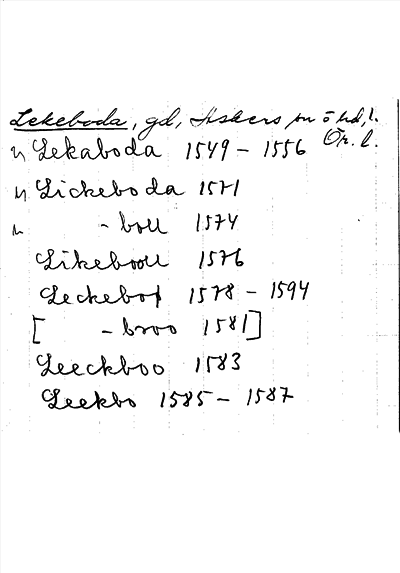 Lekeboda, gd, Askers sn ö hd, l.
Ör. l.
" Lekaboda 1549 – 1556
" Lickeboda 1571
" - boll 1574
Likeboou 1576
Leckebo 1578 – 1594
[ - broo 1581]
Leeckboo 1583
Leekbo 1585 – 1587